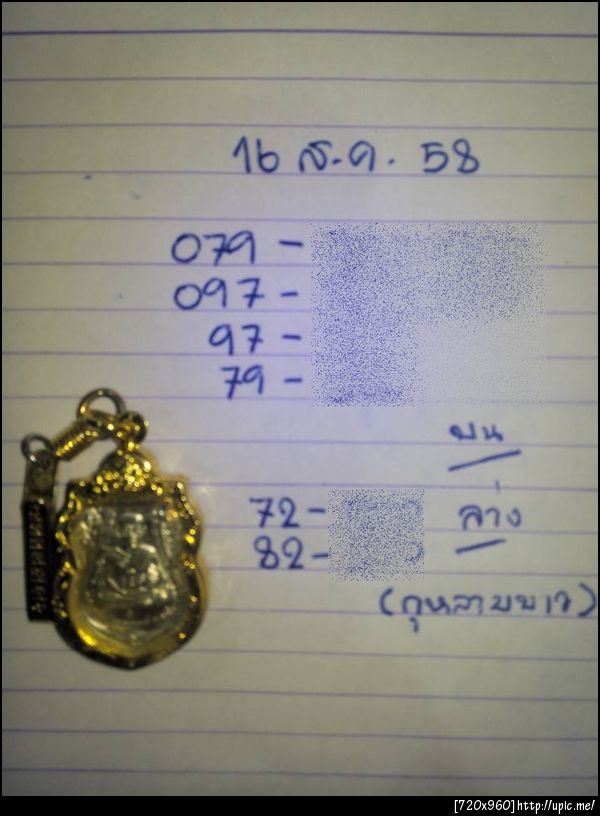 16 ส.ค. 58
079 -
097 -
97 -
79 -
บน
72 - ล่าง
82 -
(กุหลาบขาว)
[720x960]http://upic.me/